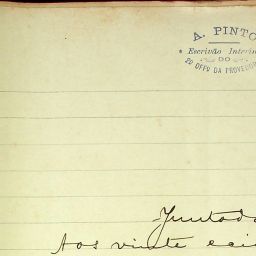 A. PINTO
Escrivão Interin
DO
2º OFFº DA PROVEDOR
Juntada
Aos vinte e ci